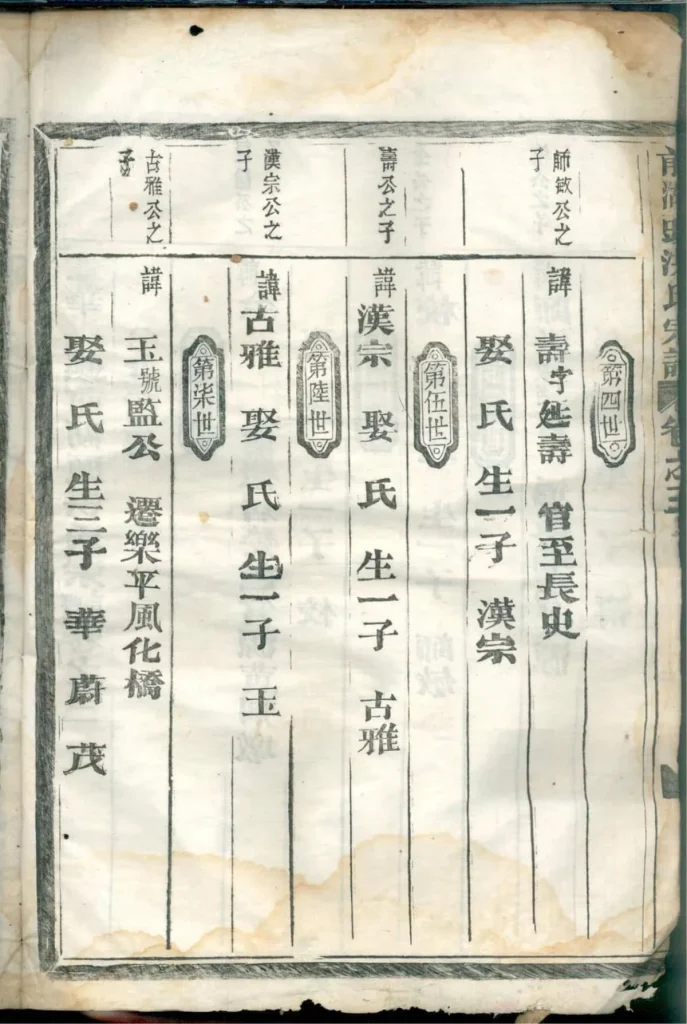 第四世
師敏公之子
諱 壽字延壽 官至長史
娶 氏 生一子 漢宗
第伍世
壽公之子
諱 漢宗 娶 氏 生一子 古雅
第陸世
漢宗公之子
諱 古雅 娶 氏 生一子 玉
第柒世
古雅公之子
諱 玉號監公 遷樂平風化橋
娶 氏 生三子 華 蔚 茂